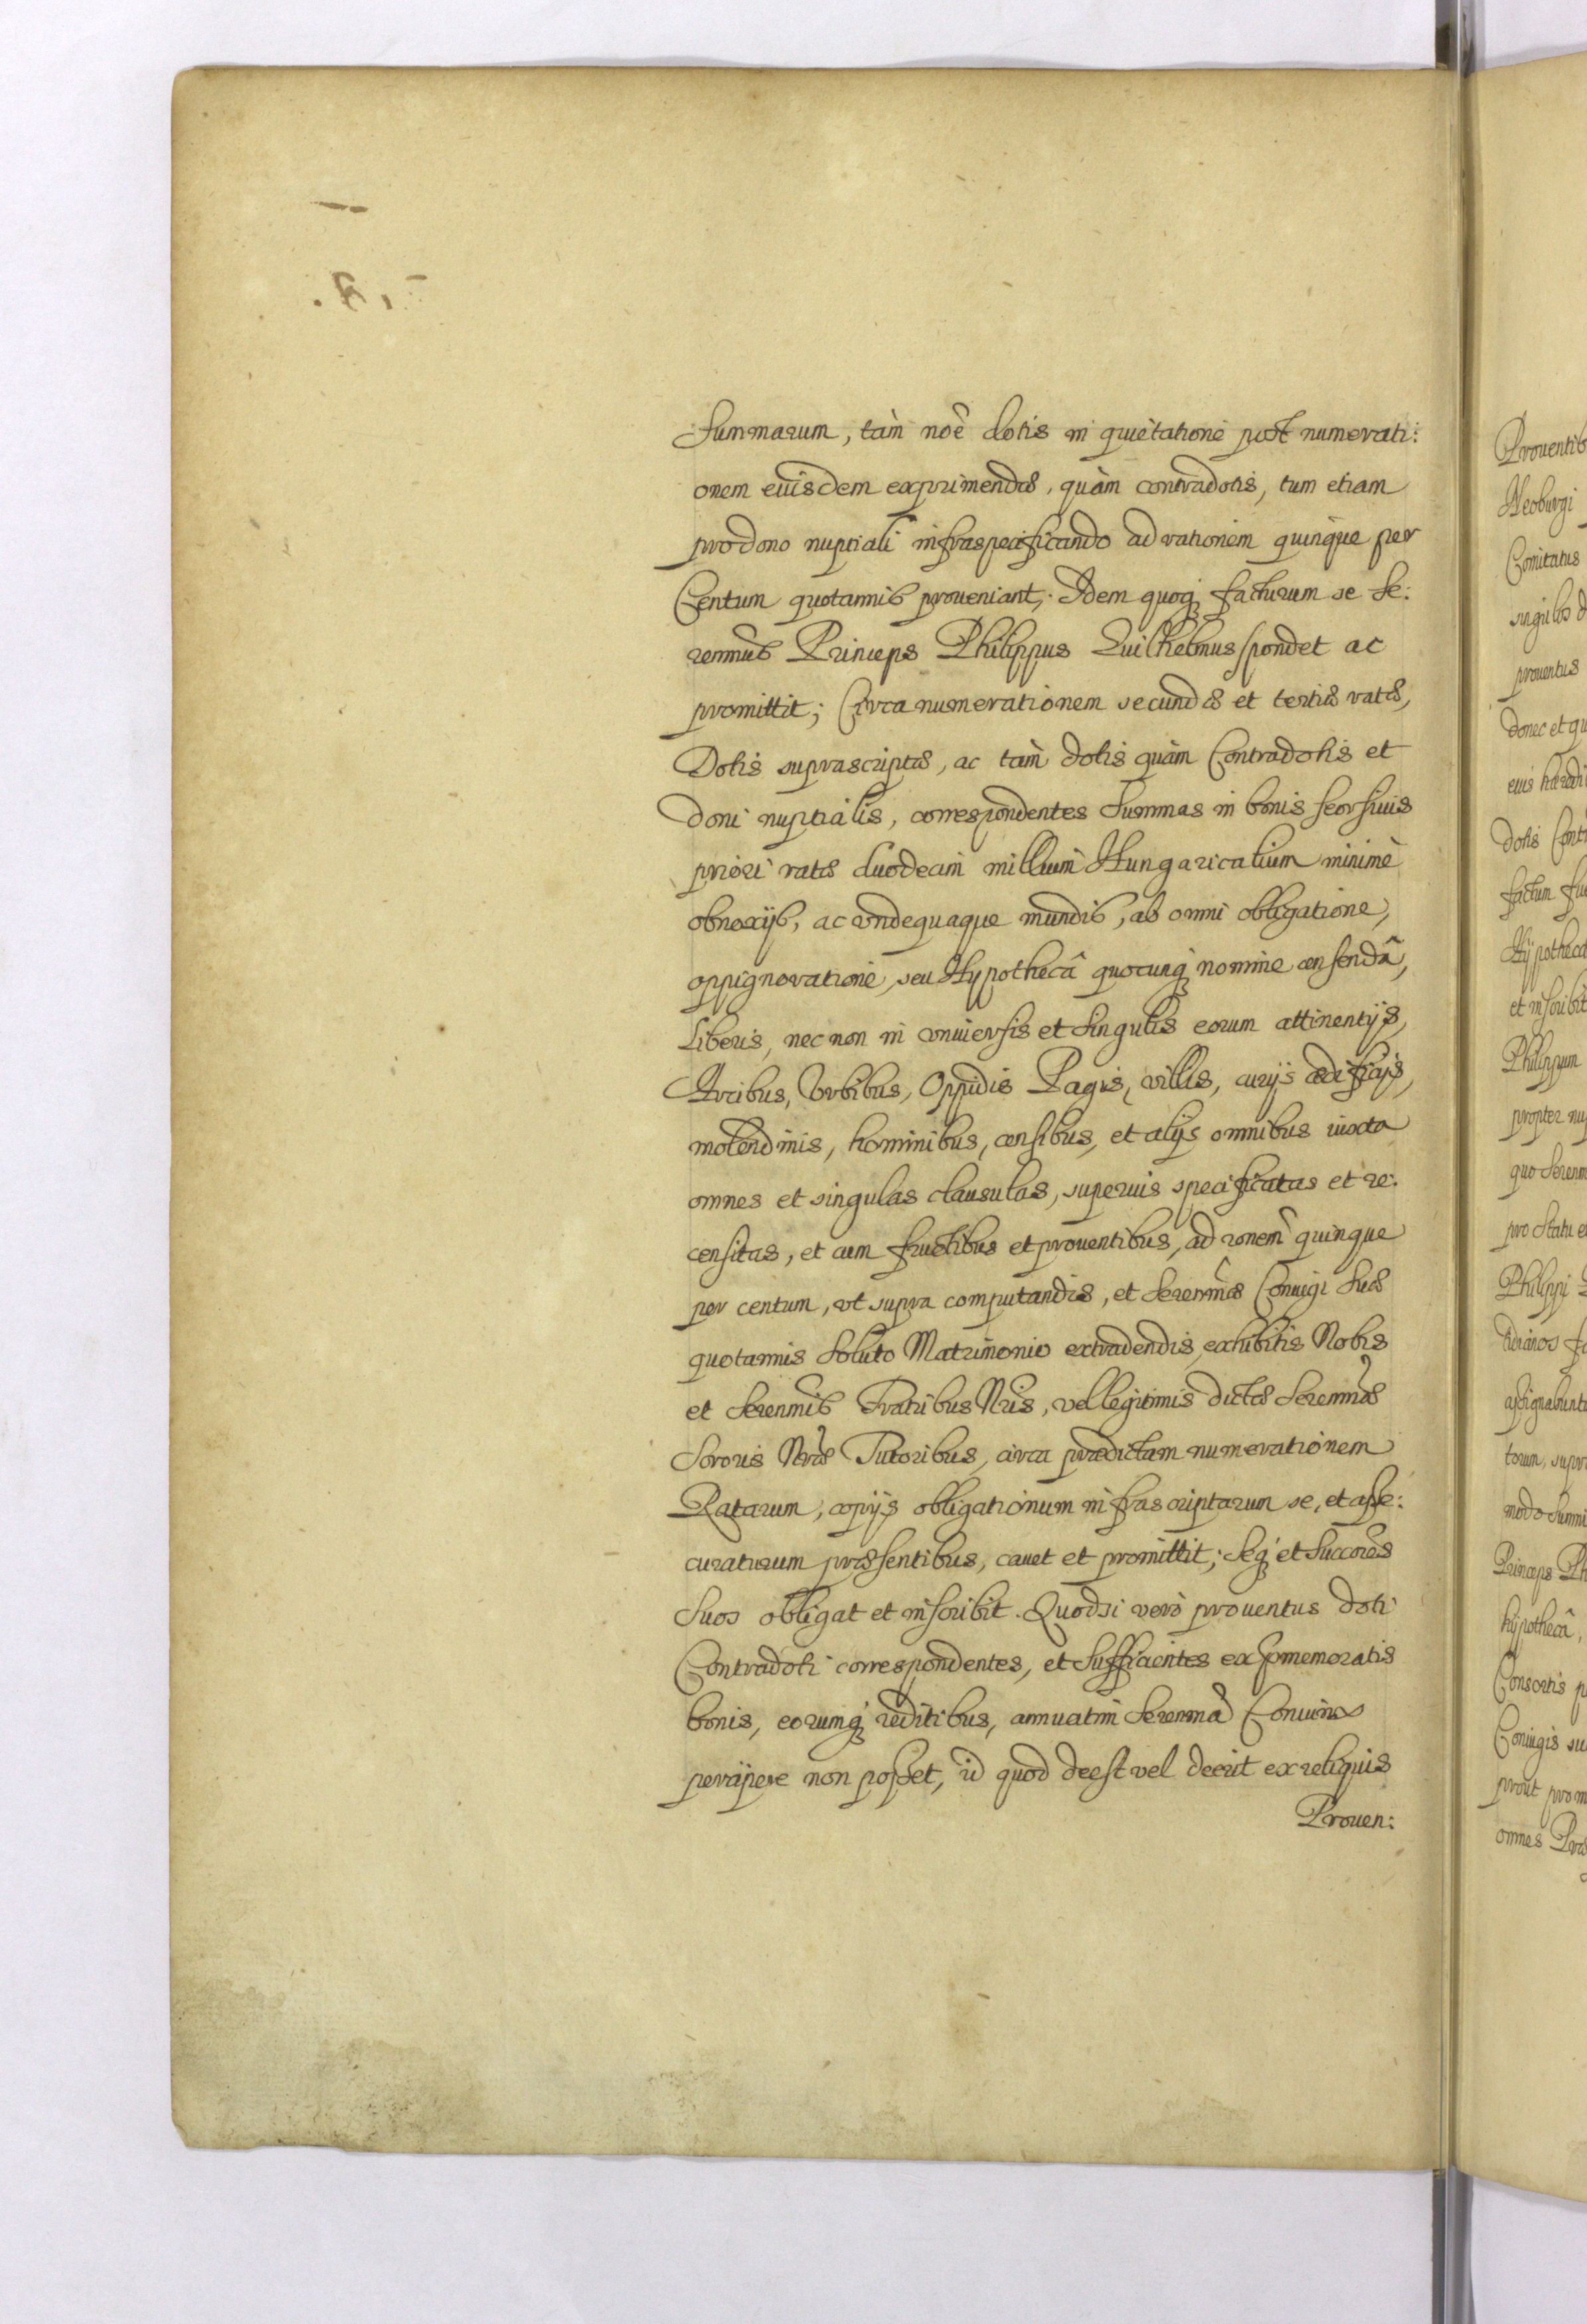 Summarum, tàm noê dotis in quietatione post numerati:
onem eiusdem exprimendæ, quàm contradotis, tum etiam
pro dono nuptiali infraspecificando ad rationem quinque per
Centum quotannis proueniant; Idem quoq facturum se Se:
renmus Princeps Philippus Guilhelmus spondet ac
promittit; Circa numerationem secundæ et tertiæ ratæ,
Dotis suprascriptæ, ac tàm dotis quàm Contradotis et
doni nuptialis, correspondentes Summas in bonis seorsiuis
priori ratæ duodecim millium Hungaricalium minimè
obnoxijs, ac vndequaque mundis, ab omni obligatione,
oppignoratione, seu Hypothecâ quocunq nomine censendâ,
Liberis, nec non in vniuersis et Singulis eorum attinentijs,
Arcibus, Vrbibus, Oppidis Pagis, villis, curijs ædificijs,
molendinis, hominibus, censibus, et alijs omnibus iuxta
omnes et singulas clausulas, superuis specificatas et re:
censitas, et cum fructibus et prouentibus, ad ronem quinque
per centum, vt supra computandis, et Serenmæ Coniugi Suæ
quotannis Soluto Matrimonio extradendis, exhibitis Nobis
et Serenmis Fratribus Nris, vel legitimis dictæ Serenmæ
Sororis Nræ Tutoribus, circa prædictam numerationem
Ratarum, copijs obligationum infrascriptarum se, et asse:
curaturum præsentibus, cauet et promittit; Seq et Succores
Suos obligat et inscribit. Quodsi verò prouentus doti
Contradoti correspondentes, et Sufficientes ex commemoratis
bonis, eorumq reditibus, annuatim Serenma Coniunx
percipere non posset, id quod deest vel deerit ex reliquis
Prouen: